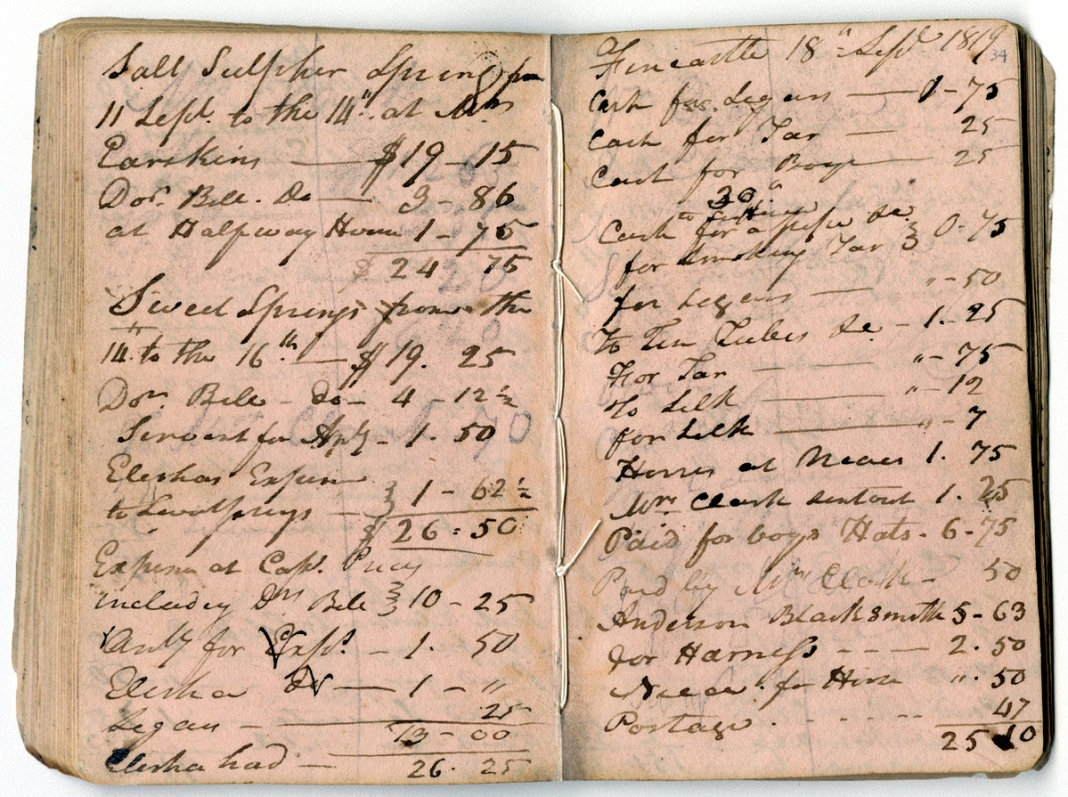 Salt Sulpher Spring from
11 Sept. to the 14" at Mrs
Earskins — $19 - 15
Dor. Bill. Do — 3 - 86
at Halfway House 1 - 75
$ 24 75
Sweet Springs from the
14" to the 16th — $19. 25
Dor. Bill - do - 4 - 12½
Servent for - 1. 50
Eleshas Expen
to Sweetsprings — 1 - 62½
$ 26 : 50
Expense at Capt.
includey Drs Bill 10 - 25
for Exps. - 1. 50
Elesha do — 1 - "
Segars — 25
13 - 00
Elesha had — 26. 25
Fincastle 18" Sept 1819
34
Cash for Segars — 0 - 75
Cash for Tar — 25
Cash for Boys — 25
30"
Cash for a &c
for smoking Tar 0 - 75
for Segars — " - 50
To Ten Tubes &c - 1. 25
For Tar — " - 75
To Silk — " - 12
for Silk — " - 7
Horses at 1. 75
Mrs Clark sentout 1. 25
Paid for boys Hats. 6 - 75
Paid by Wm Clark - 50
Anderson Blacksmith 5 - 63
for Harness - - - - 2. 50
for Hire ". 50
Postage . - . - . . - - 47
25 10